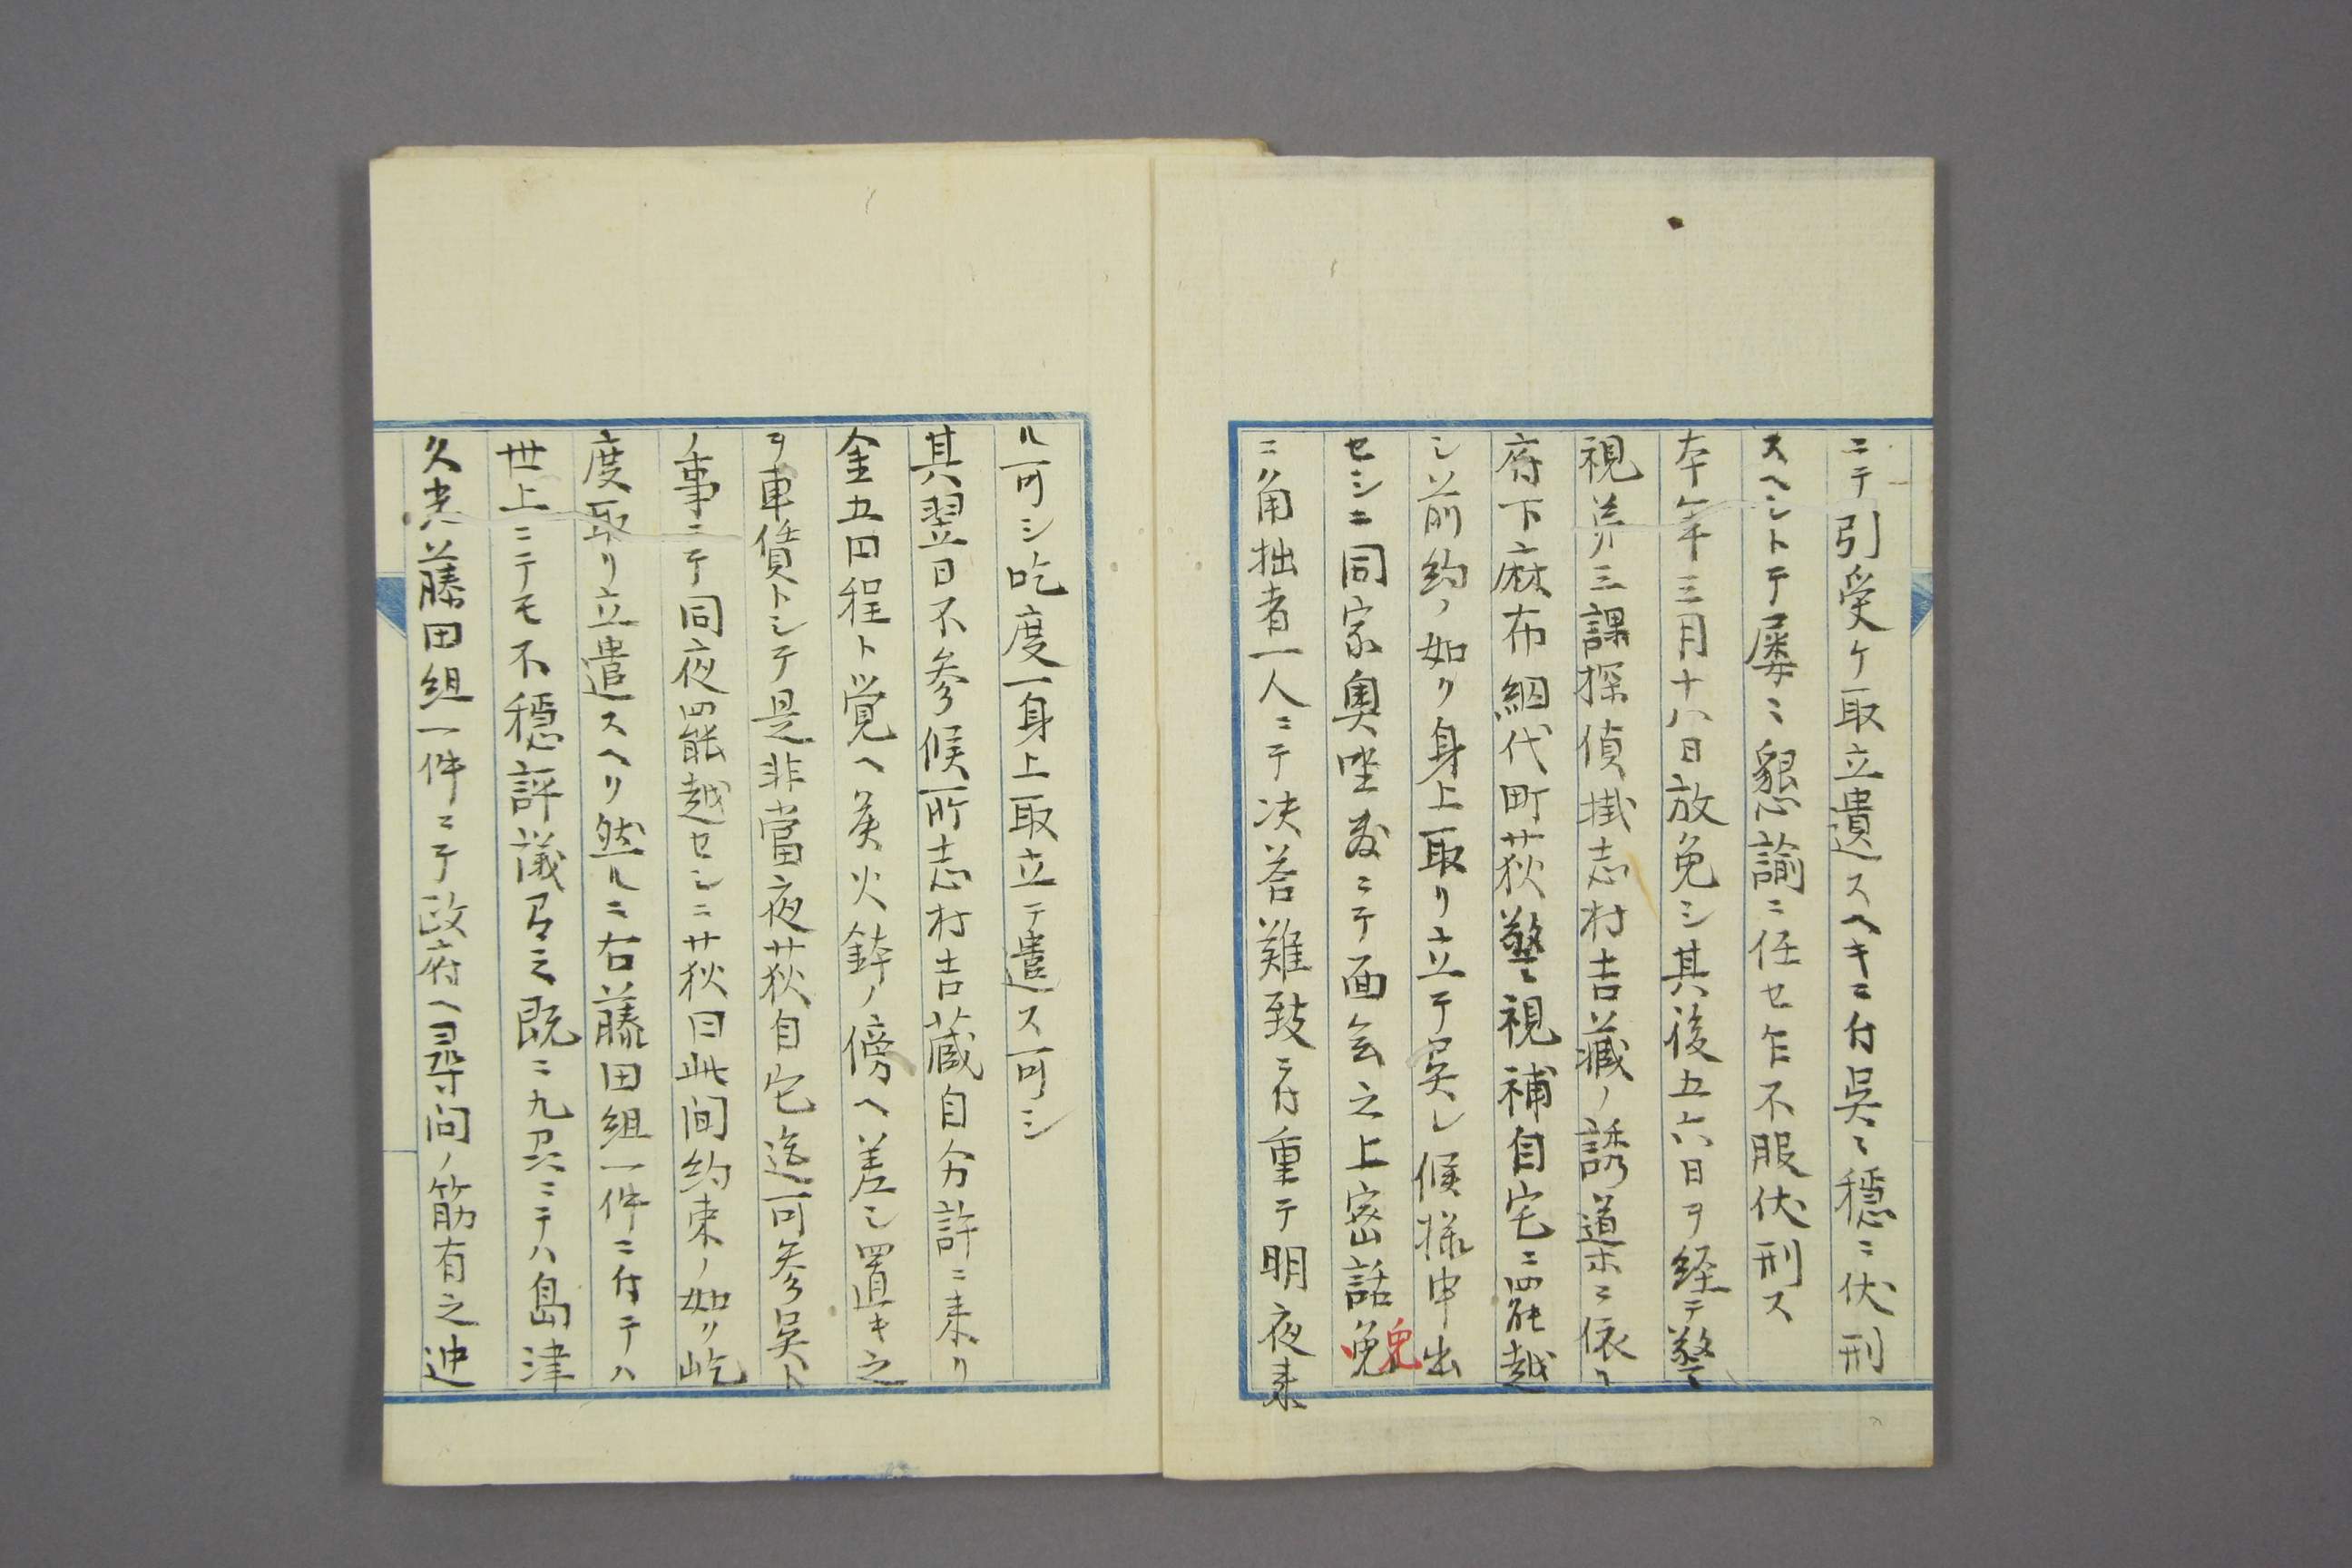 ニテ引受ケ取立遣スヘキニ付呉々穏ニ伏刑
スヘシトテ屡々懇諭ニ任セ乍不服伏刑ス
本年三月十八日放免シ其後五六日ヲ経テ警
視第三課探偵掛志村吉蔵ノ誘導ニ依テ
府下麻布網代町荻警視補自宅ニ罷越
シ前約ノ如ク身上取リ立テ呉レ候様申出
セシニ同家奥座敷ニテ面会之上密話
ニ角拙者一人ニテ決答難致ニ付重テ明夜来
ル可シ吃度一身上取立テ遣ス可シ
其翌日不参候所志村吉蔵自分許ニ来リ
金五円程ト覚ヘ美火鉢ノ傍ヘ差シ置キ之
ヲ車賃トシテ是非當夜荻自宅迄可参呉ト
ノ事ニテ同夜罷越セシニ荻曰此間約束ノ如ク屹
度取リ立遣スヘリ然ルニ右藤田組一件ニ付テハ
世上ニテモ不穏評議有之既ニ九州ニテハ島津
久光藤田組一件ニテ政府ヘ尋問ノ筋有之